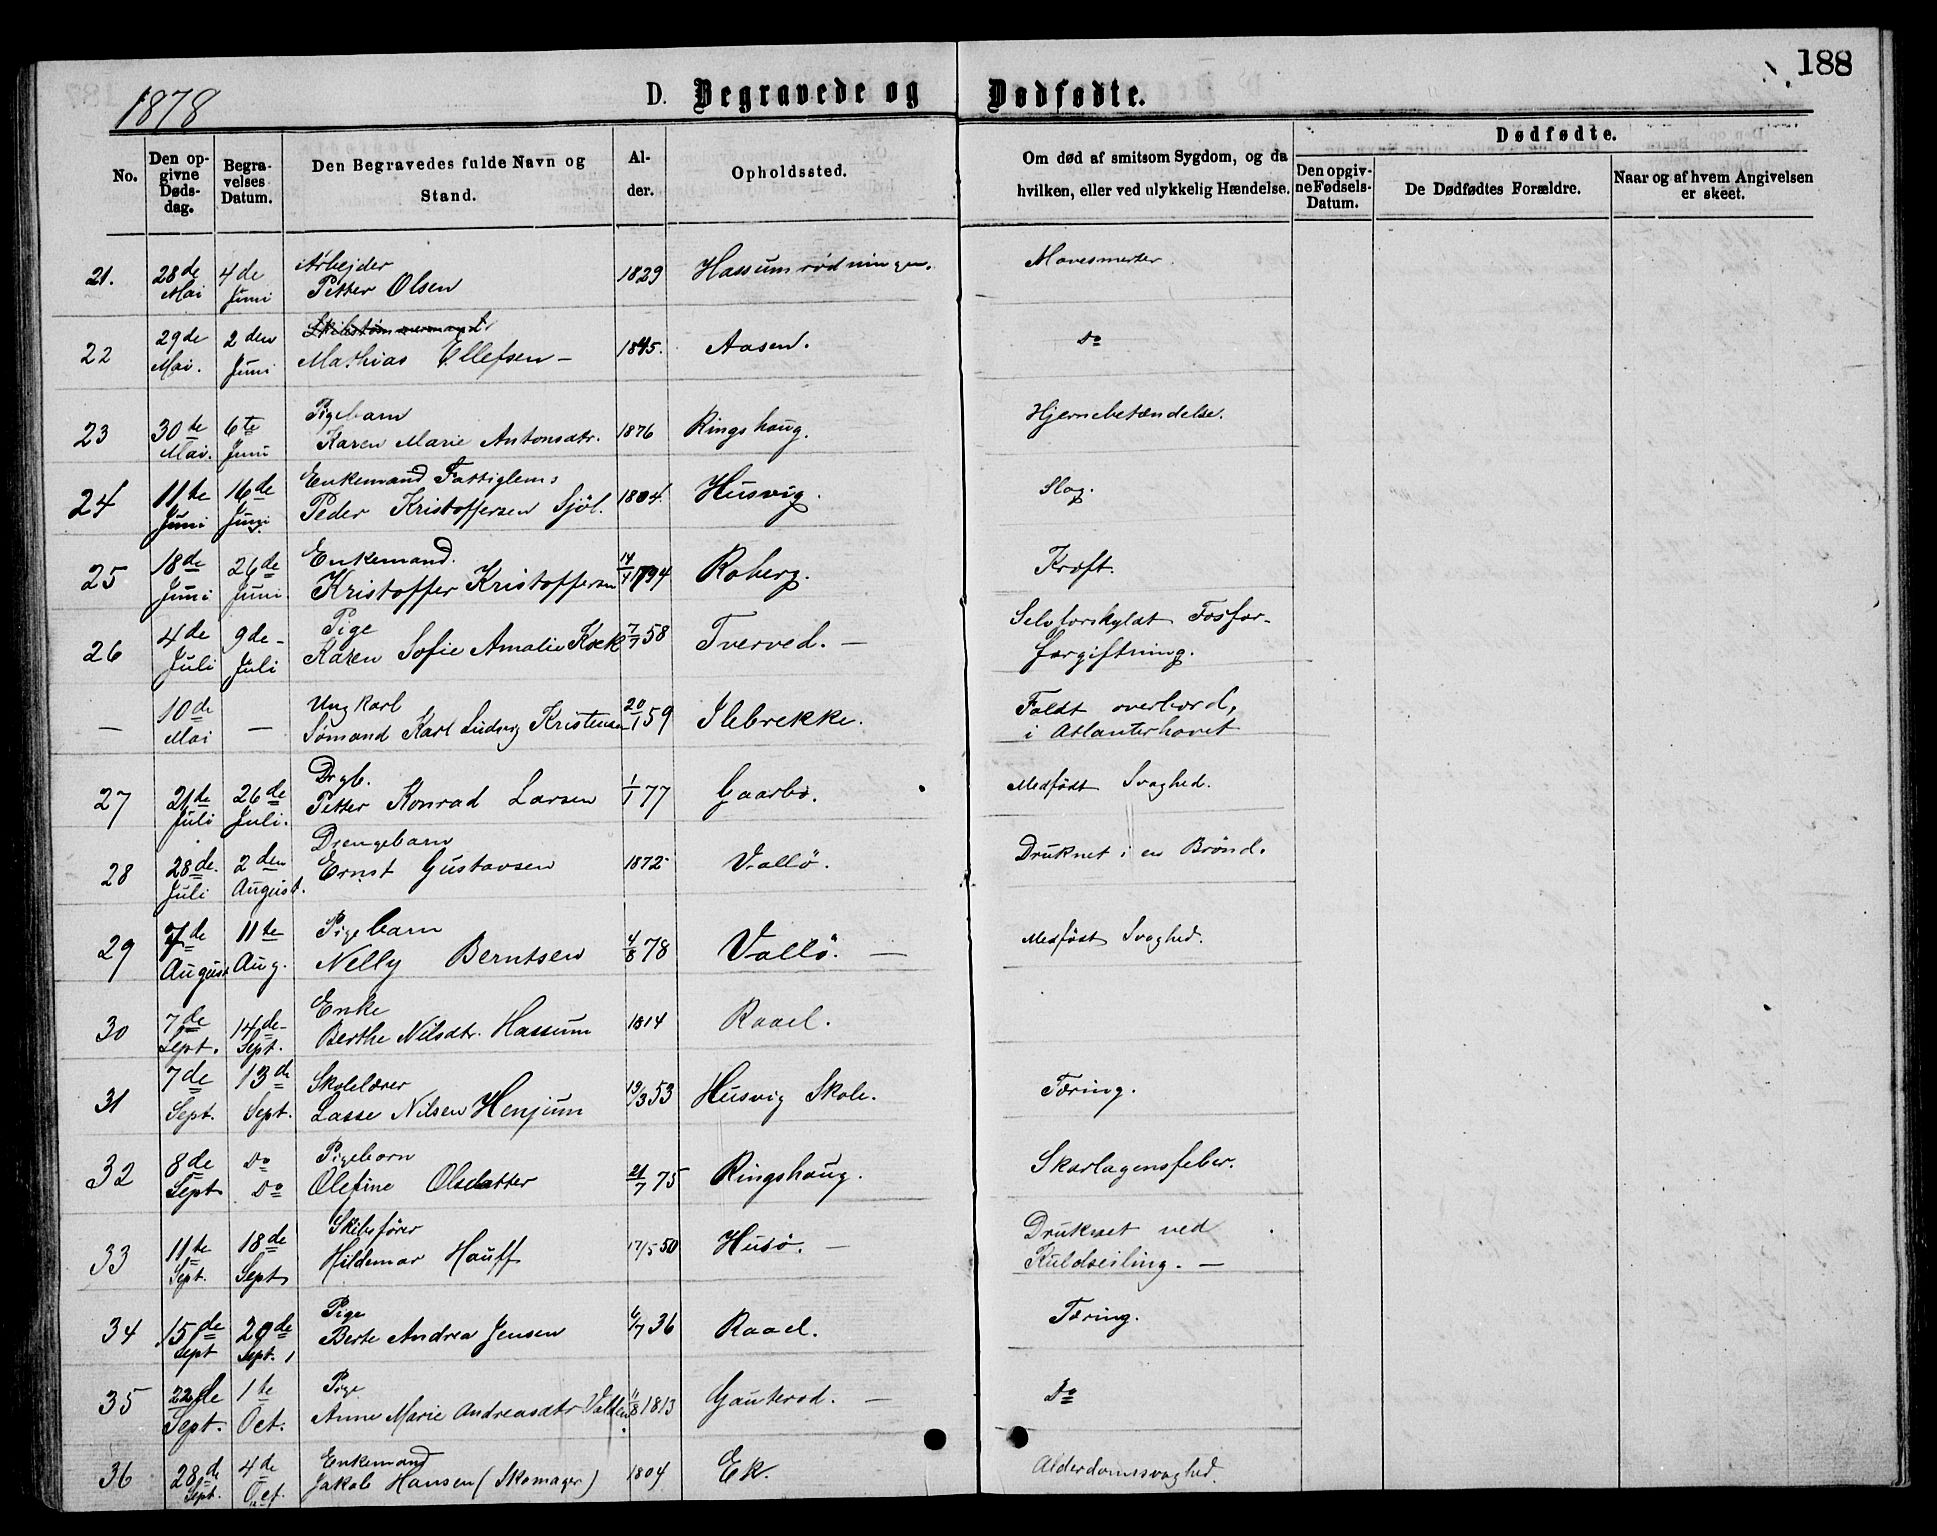 188
1878
D. Begravede og Dødfødte.
No.
Den opgivne Døds-dag.
Begra-velses Datum.
Den Begravedes fulde Navn og Stand.
Al-der.
Opholdssted.
Om død af smitsom Sygdom, og da hvilken, eller ved ulykkelig Hændelse.
Dødfødte.
Den opgiv-ne Fødsels-Datum.
De Dødfødtes Forældre.
Naar og af hvem Angivelsen er skeet.
21. 28de Mai 4de Juni Arbejder Petter Olsen 1829 Hassumrødningen. Mavesmerter.
22 29de Mai. 2den Juni Skibstømmermand Mathias Ellefsen - 1845. Aasen. Do
23 30te Mai. 6te Juni Pigebarn Karen Marie Antonsdtr. 1876 Ringshaug. Hjernebetændelse.
24 11te Juni 16de Juni Enkemand Fattiglem: Peder Kristoffersen Sjöl. 1804. Husvig. Slag.
25 18de Juni 26de Juni Enkemand. Kristoffer Kristoffersen 14/4 1794 Roberg. Kræft.
26 4de Juli 9de - Juli Pige Karen Sofie Amalie 7/7 58 Tverved. - Selvforskyldt Fosfor-forgiftning.
- 10de Mai - Ungkarl Sømand Karl Ludvig Kristensen 20/1 59 Ilebrekke. Faldt overbord, i Atlanterhavet
27 21te Juli 26de Juli. Drgb. Petter Konrad Larsen 1/1 77 Gaarbo. Medfødt Svaghed.
28 28de. Juli 2den August. Drengebarn Ernst Gustavsen 1872 Vallö. Druknet i en Brønd.
29 7de August 11te Aug. Pigebarn Nelly Berntsen 4/8 78 Vallö. - Medfødt Svaghed.
30 7de Sept. 14de- Sept. Enke Berthe Nilsdtr. Hassum 1814 Raael.
31 7de Sept. 13de Sept. Skolelærer Lasse Nilsen Henjum 19/3 53 Husvig Skole. Tæring.
32 8de Sept Do Do Pigebarn Olefine Olsdatter 21/7 75 Ringshaug. Skarlagensfeber.
33 11te Sept. 18de Sept Skibsfører Hildemar Hauff 17/5 50 Husö. - Druknet ved Kuldseiling. -
34 15de Sept 20de Sept. Pige Berte Andrea Jensen 6/7 36 Raael. Tæring.
35 22de Sept. 1te Oct. Pige Anne Marie Andreasdtr 11/8 1813 Gauterød. - Do
36 28de Sept. 4de Oct. Enkemand Jakob Hansen (Skomager) 1804 Ek. Alderdomssvaghed.